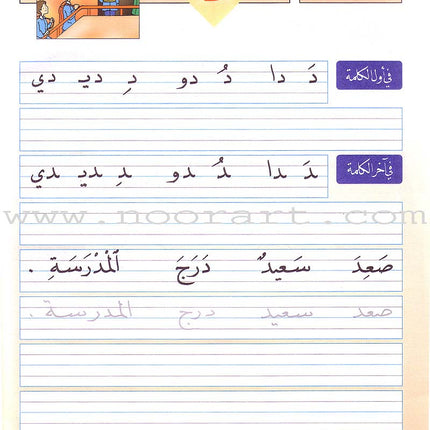 في أول الكلمة دَ دا دُ دو دِ ديـ دي
في آخر الكلمة ـدَ ـدا ـدُ ـدو ـدِ ـديـ ـدي
www.noorart.com
صَعِدَ سَعيدٌ دَرَجَ الْمَدْرَسَةِ .
صعد سعيد درج المدرسة .